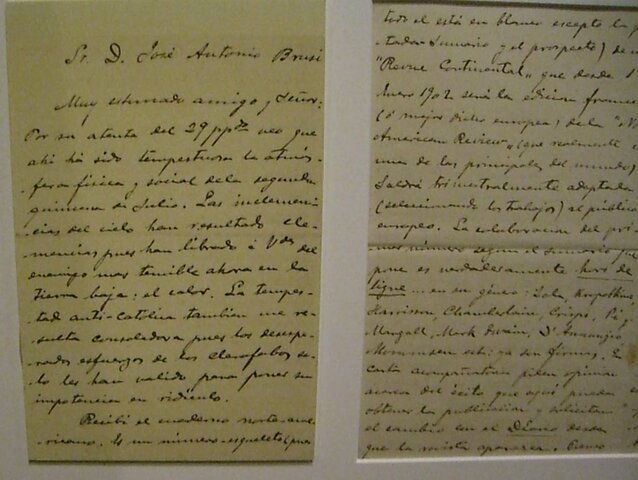 Sr. D. José Antonio Brusi
Muy estimado amigo y Señor:
Por su atenta del 29 ppdo veo que
ahi há sido tempestuosa la atmós-
fera física y social de la segunda
quincena de Julio. Las inclemen-
cias del cielo han resultado cle-
mencias pues han librado á Vdes del
enemigo mas temible ahora en la
tierra baja: el calor. La tempes-
tad anti-católica tambien me re-
sulta consoladora pues los desespe-
rados esfuerzos de los clerófobos so-
lo les han valido para poner su
impotencia en ridículo.
Recibí el cuaderno norte-ame-
ricano. Es un número-esqueleto (pues
todo el está en blanco escepto la p
tada sumario y el prospecto) de
"Revue Continental" que desde 1
Enero 1902 será la edicion france
(ó mejor dicho europea) de la "N
American Review" (que realmente
una de las principales del mundo)
Saldrá trimestralmente adaptada
(seleccionando los trabajos) al público
europeo. La colaboracion del pri-
mer número segun el sumario que
pone es verdaderamente hors de
ligne ... en su género: Zola, Kropotkine
Harrison, Chamberlain, Crispi, Pi
Margall, Mark Twain, D'Annunzio,
Mommsen etc: ya son firmas. En
carta acompañatoria piden opinion
acerca del éxito que aquí pueda
obtener la publicacion y solicitan
el cambio con el Diario desde
que la revista aparezca.